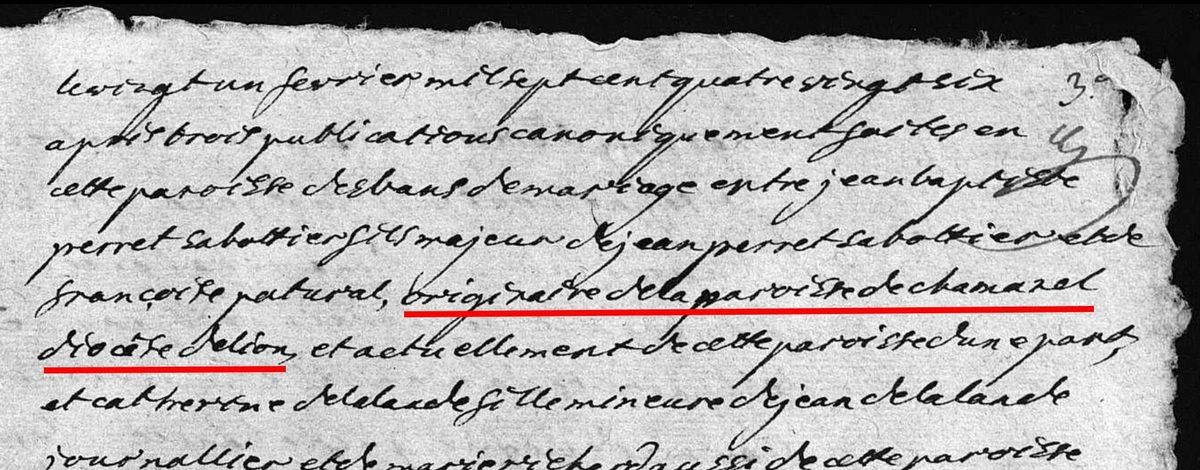 le vingt un fevrier mil sept cent quatre vingt six 3.e
apres trois publications canoniquement faites en
cette paroisse des bans de mariage entre jean baptiste
perret sabottier fils majeur de jean perret sabottier et de
françoise patural, originaire de la paroisse de chamazel
diocèse de lion, et actuellement de cette paroisse dune part,
et catherine delalande fille mineure de jean delalande
journallier et de marie aussi de cette paroisse